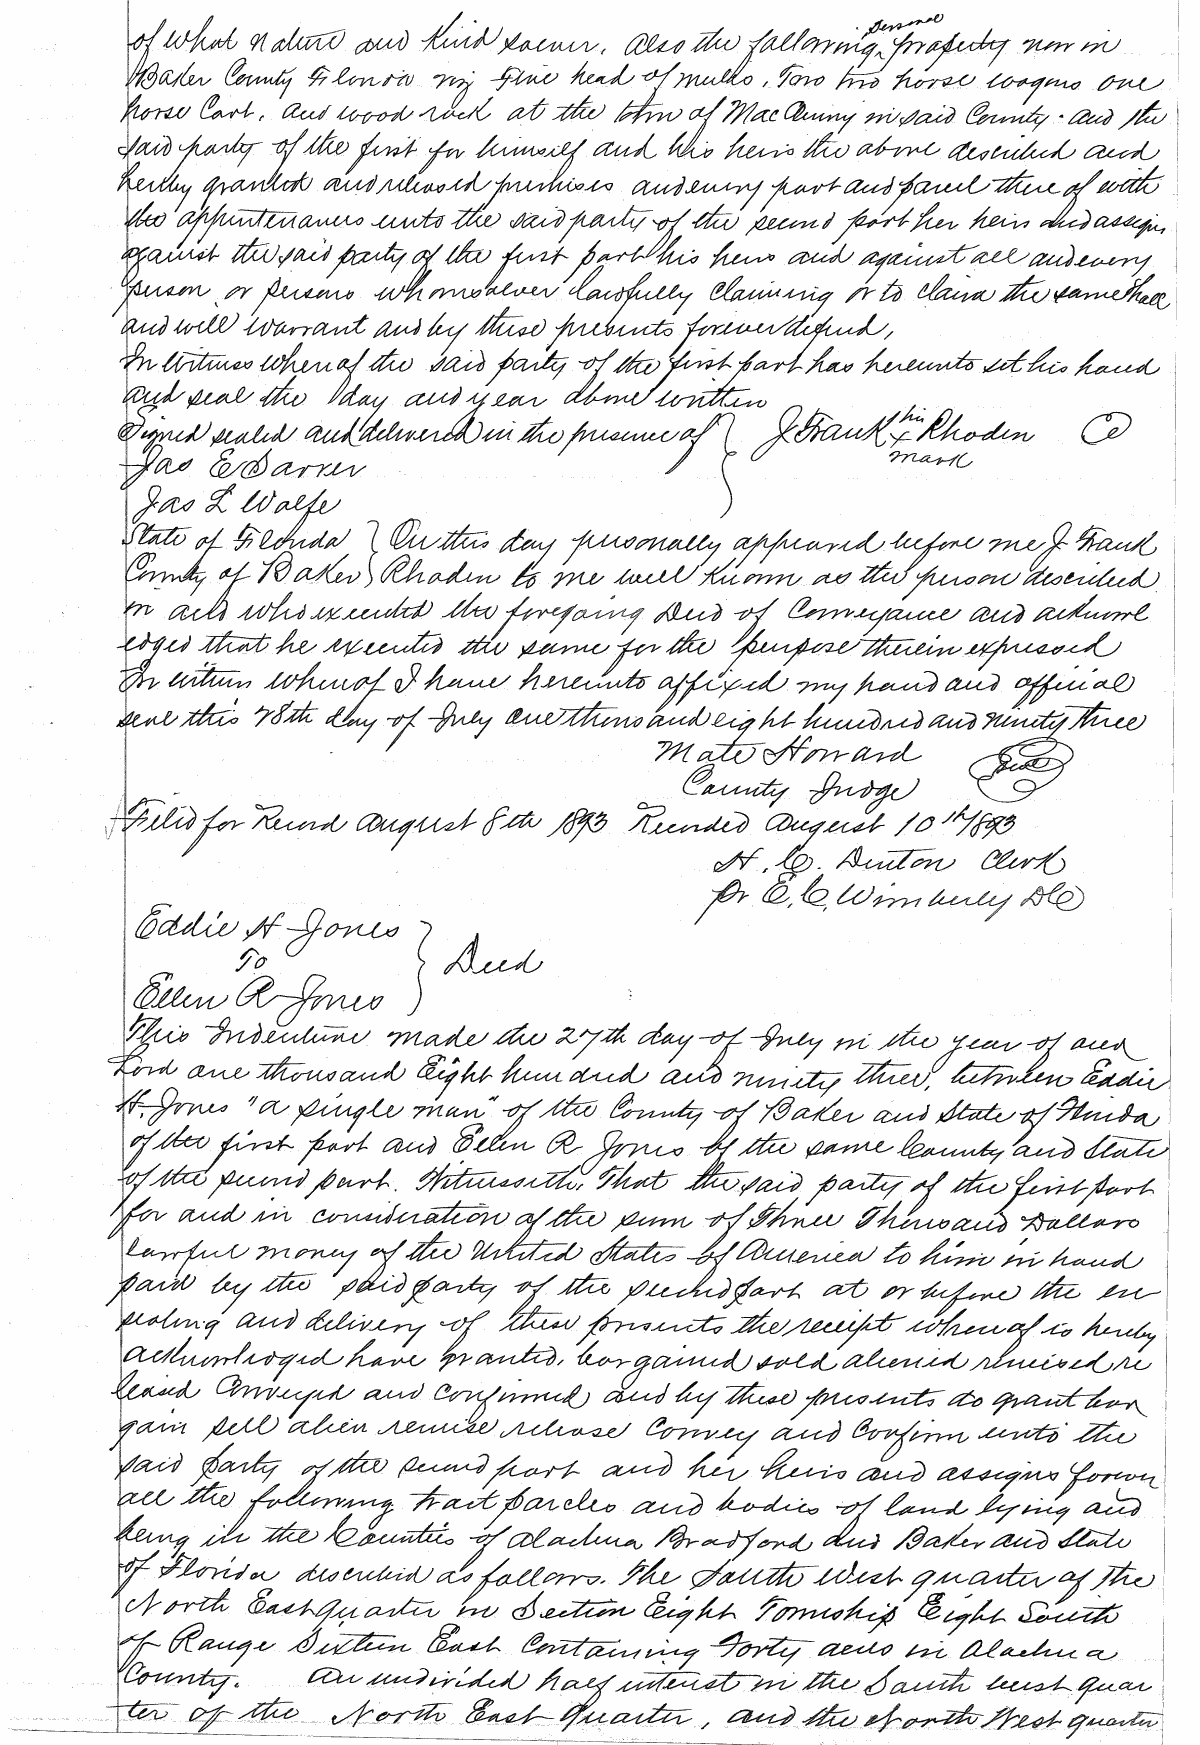 of what nature and kind soever. Also the following personal property now in
Baker County Florida viz Five head of mules, Two two horse wagons one
horse Cart, and wood rack at the town of MacClenny in said County. and the
said party of the first for himself and his heirs the above described and
hereby granted and released premises and every part and parcel there of with
the appurtenances unto the said party of the second part her heirs and assigns
against the said party of the first part his heirs and against all and every
person or persons whomsoever lawfully claiming or to claim the same shall
and will warrant and by these presents forever defend,
In Witness whereof the said party of the first part has hereunto set his hand
and seal the day and year above written
Signed sealed and delivered in the presence of } J. Frank his x mark Rhoden
Jas E Barker
Jas L Wolfe
State of Florida } On this day personally appeared before me J Frank
County of Baker } Rhoden to me well known as the person described
in and who executed the foregoing Deed of Conveyance and acknowl
edged that he executed the same for the purpose therein expressed
In witness whereof I have hereunto affixed my hand and official
seal this 28th day of July one thousand eight hundred and ninety three
Mate Howard Seal
County Judge
Filed for Record August 8th 1893 Recorded August 10th 1893
H. C. Dinton Clerk
Pr E. C. Wimberly DC
Eddie H Jones
To } Deed
Ellen R Jones
This Indenture made the 27th day of July in the year of our
Lord one thousand Eight hundred and ninety three, between Eddie
H. Jones "a single man" of the County of Baker and State of Florida
of the first part and Ellen R Jones of the same County and State
of the second part. Witnesseth, That the said party of the first part
for and in consideration of the sum of Three Thousand Dollars
lawful money of the United States of America to him in hand
paid by the said party of the second part at or before the en
sealing and delivery of these presents the receipt whereof is hereby
acknowledged have granted, bargained sold aliened remised re
leased Conveyed and confirmed and by these presents do grant bar
gain sell alien remise release Convey and Confirm unto the
said party of the second part and her heirs and assigns forever
all the following trait parcles and bodies of land lying and
being in the Counties of Alachua Bradford and Baker and State
of Florida described as follows. The South West quarter of the
North East Quarter in Section Eight Township Eight South
of Range Sixteen East Containing Forty acres in Alachua
County. An undivided half interest in the South west quar
ter of the North East Quarter, and the North West quarter